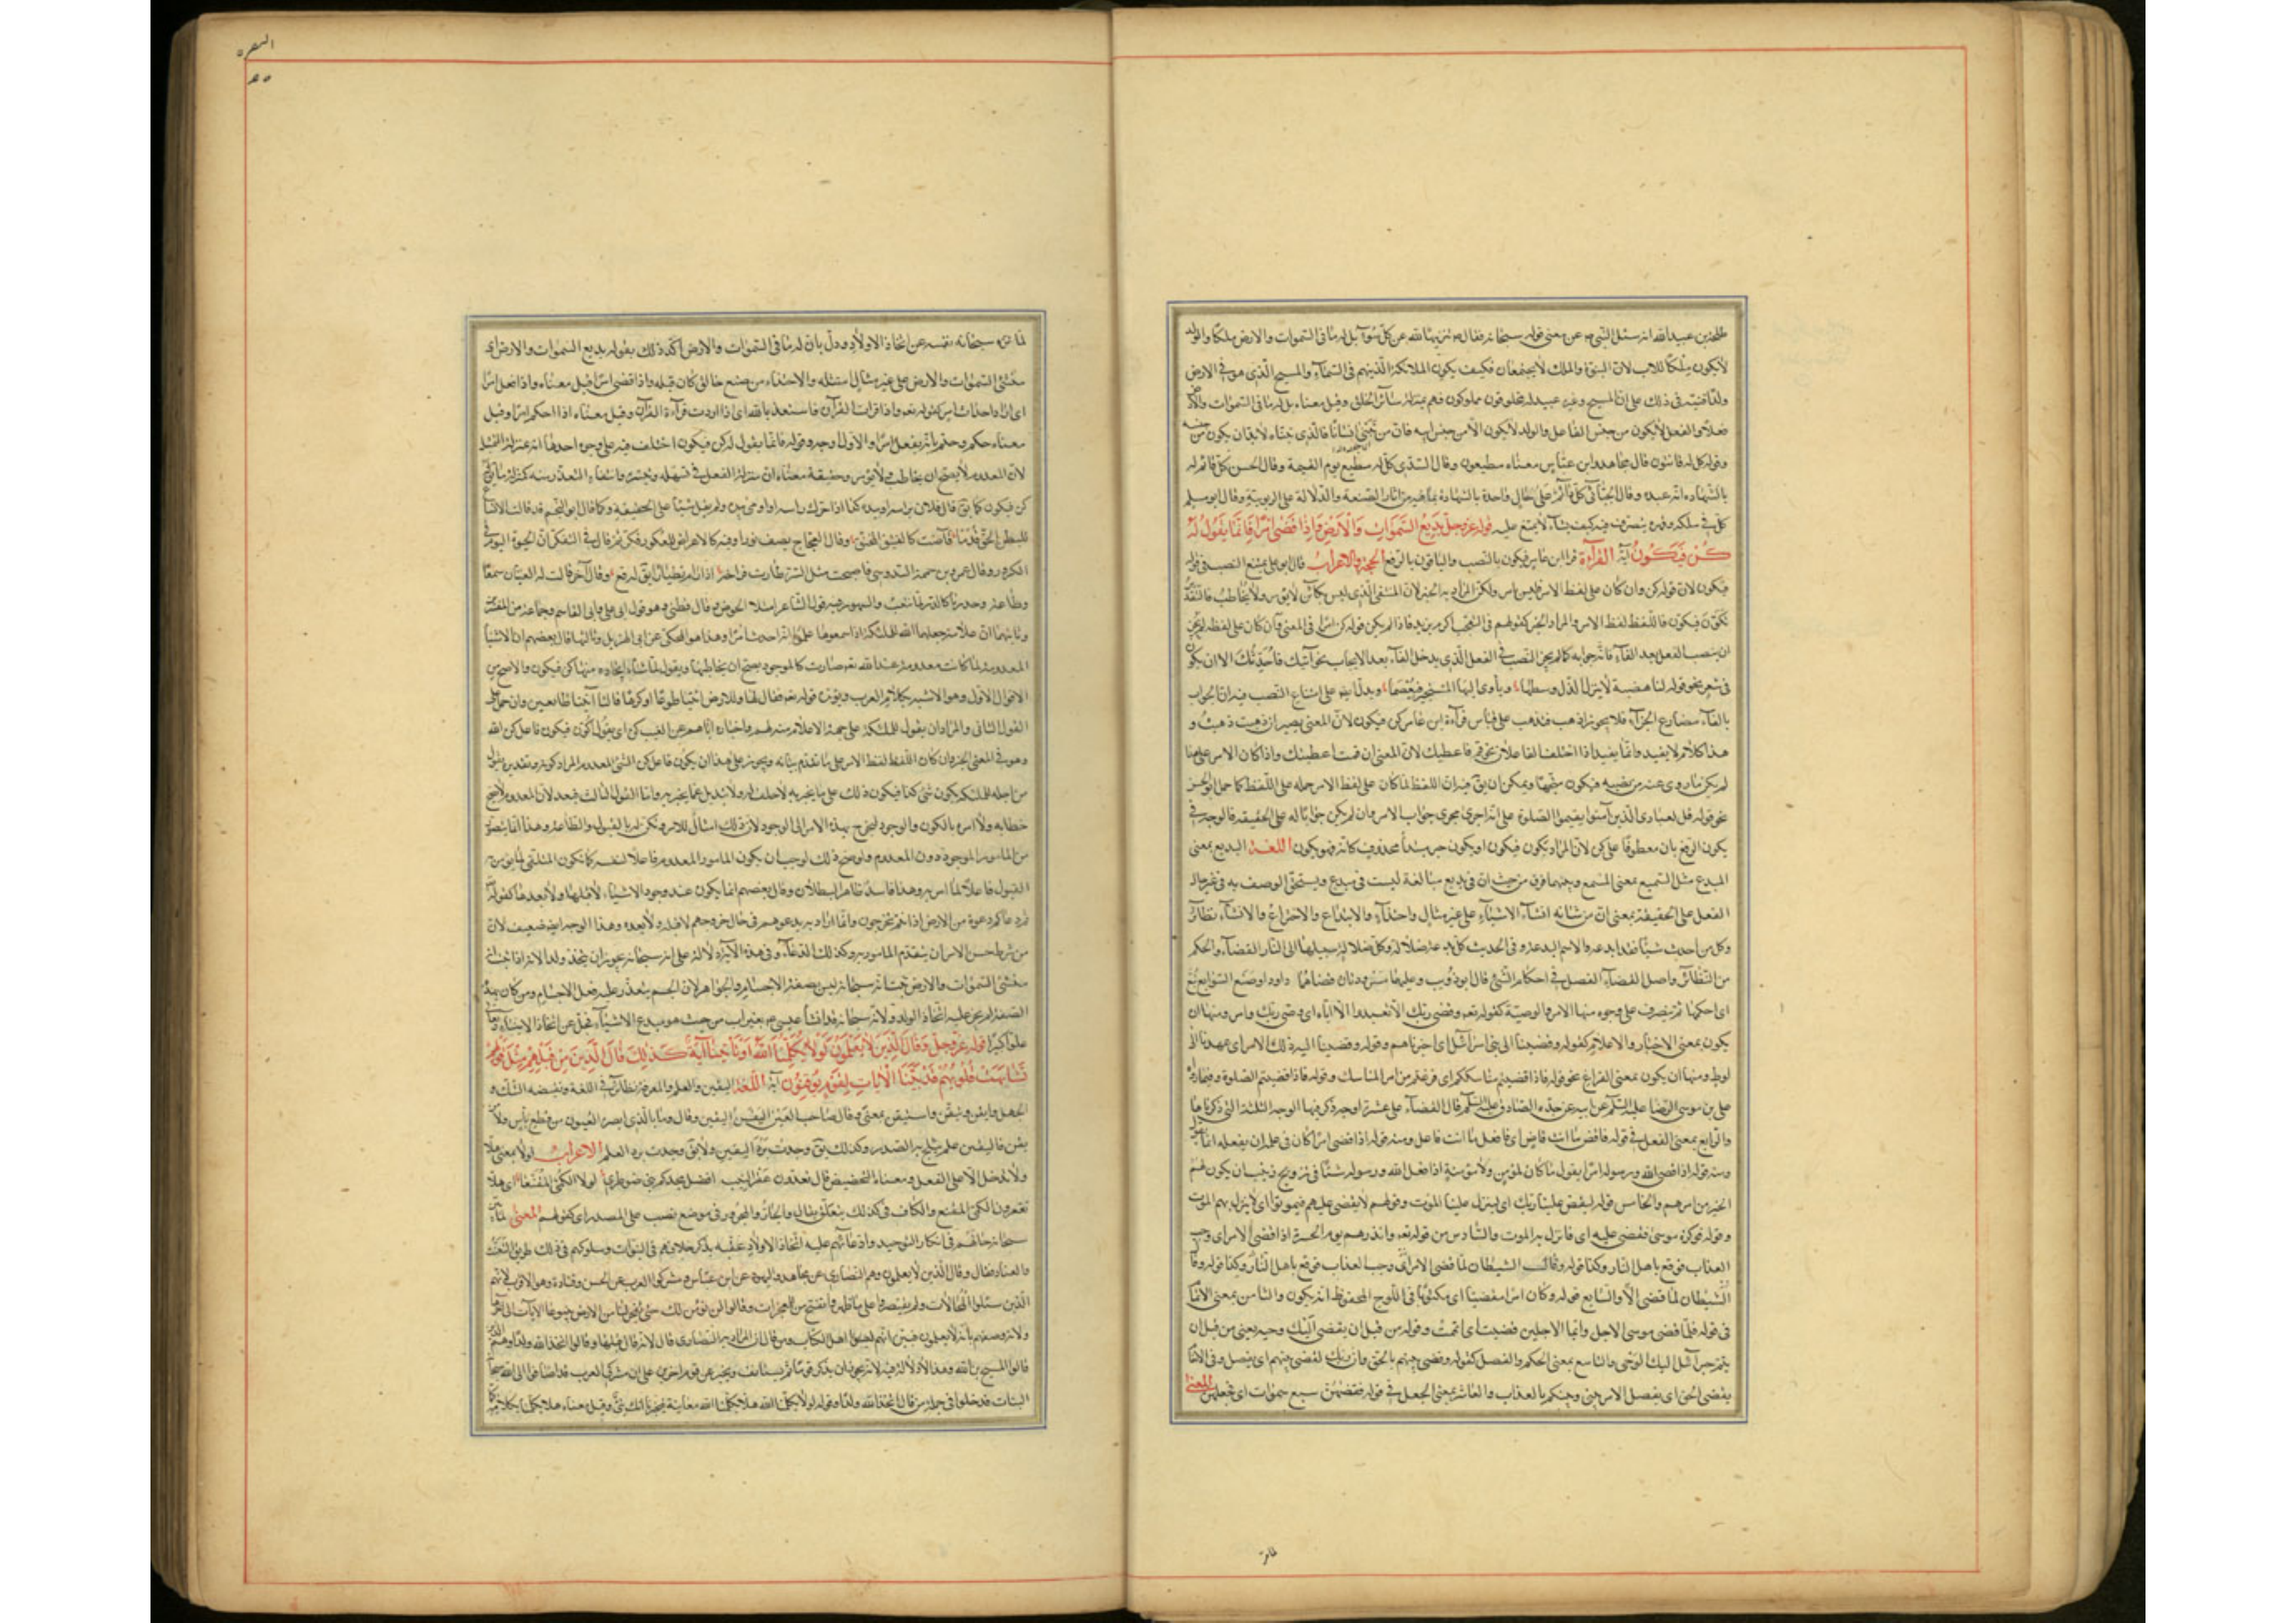 طلحة بن عبيد الله انه سئل النبي عن معنى قوله سبحانه فقال تنزيها لله عن كل سوء بل له ما في السموات والارض ملكا والولد
لا يكون ملكا للاب لان البنوة والملك لا يجتمعان فكيف يكون الملائكة الذين هم في السماء والمسيح الذي هو في الارض
فعلا والفعل لا يكون من جنس الفاعل والولد لا يكون الا من جنس ابيه
وقوله كل له قانتون قال مجاهد وابن عباس معناه مطيعون وقال السدي كل له مطيع يوم القيمة وقال الحسن كل قائم له
بالشهادة انه عبده وقال الجبائي كل قائم على حال واحدة بالشهادة بما فيه من اثار الصنعة والدلالة على الربوبية وقال ابو مسلم
كل في ملكه وقهره يتصرف فيه كيف يشاء لا يمتنع عليه قوله عز وجل بديع السموات والارض واذا قضى امرا فانما يقول له
كن فيكون آية القراءة قرا ابن عامر فيكون بالنصب والباقون بالرفع الحجة والاعراب قال ابو علي يمتنع النصب في قوله
فيكون لان قوله كن وان كان على لفظ الامر فليس بامر ولكن المراد به الخبر لان المنفي الذي ليس بكائن لا يؤمر ولا يخاطب فالتقدير
نكون فيكون فاللفظ لفظ الامر والمراد الخبر كقولهم في التعجب اكرم بزيد فاذا لم يكن قوله كن امرا في المعنى وان كان على لفظه لم يجز
ان ينصب الفعل بعد الفاء فانه جوابه كما لم يجز النصب في الفعل الذي يدخل الفاء بعد الايجاب نحو آتيك فاحدثك الا ان يكون
في شعر نحو قوله لنا هضبة لا ينزل الذل وسطها وياوى اليها المستجير فيعصما ويدل ايضا على امتناع النصب فيه ان الجواب
بالفاء مضارع الجزاء فلا يجوز اذهب فتذهب على قياس قراءة ابن عامر كن فيكون لان المعنى يصير ان ذهبت ذهبت و
هذا كلام لا يفيد وانما يفيد اذا اختلف الفاعلان نحو قم فاعطيك لان المعنى ان قمت اعطيتك واذا كان الامر على هذا
لم يكن ما روي عنه من نصبه فيكون متجها ويمكن ان يق فيه ان اللفظ لما كان على لفظ الامر حمله على اللفظ كما حمل ابو الحسن
نحو قوله قل لعبادى الذين آمنوا يقيموا الصلوة على انه اجرى مجرى جواب الامر وان لم يكن جوابا له على الحقيقة فالوجه في
يكون الرفع بان معطوفا على كن لان المراد نكون فيكون او يكون خبر مبتدأ محذوف كانه فهو يكون اللغة البديع بمعنى
المبدع مثل السميع بمعنى المسمع وبينهما فرق من حيث ان في بديع مبالغة ليست في مبدع ويستحق الوصف به في غير حال
الفعل على الحقيقة بمعنى ان من شانه انشاء الاشياء على غير مثال واحتذاء والابتداع والاختراع والانشاء نظائر
وكل من احدث شيئا فقد ابدعه والاسم البدعة وفي الحديث كل بدعة ضلالة وكل ضلالة سبيلها الى النار القضاء والحكم
من النظائر واصل القضاء الفصل في احكام الشئ قال ابو ذؤيب وعليهما مسرودتان قضاهما داود او صنع السوابغ تبع
اى احكمها ثم ينصرف على وجوه منها الامر والوصية كقوله تعه وقضى ربك الا تعبدوا الا اياه اى وصى ربك وامر ومنها ان
يكون بمعنى الاخبار والاعلام كقوله وقضينا الى بنى اسرائيل اى اخبرناهم وقوله وقضينا اليه ذلك الامر اى عهدنا الى
لوط ومنها ان يكون بمعنى الفراغ نحو قوله فاذا قضيتم مناسككم اى فرغتم من امر المناسك وقوله فاذا قضيتم الصلوة
على بن موسى الرضا عليه السلم عن ابيه عن جده الصادق عليه السلم قال القضاء على عشرة اوجه ذكر فيها الوجه الثلثة التى ذكرناها
والرابع بمعنى الفعل في قوله فاقض ما انت قاض اى فافعل ما انت فاعل ومنه قوله اذا قضى امرا كان في علمه ان يفعله
ومنه قوله اذا قضى الله ورسوله امرا يقول ما كان لمؤمن ولا مؤمنة اذا فعل الله ورسوله شيئا في تزويج زينب ان يكون لهم
الخيرة من امرهم والخامس قوله ليقض علينا ربك اى لينزل علينا الموت وقولهم لا يقضى عليهم فيموتوا اى لا ينزل بهم الموت
وقوله فوكزه موسى فقضى عليه اى فانزل به الموت والسادس من قوله تعه وانذرهم يوم الحسرة اذ قضى الامر اى وجب
العذاب فوقع باهل النار وكذا قوله وقال الشيطان لما قضى الامر اى وجب العذاب فوقع باهل النار وكذا قوله وقال
الشيطان لما قضى الامر والسابع قوله وكان امرا مقضيا اى مكتوبا في اللوح المحفوظ انه يكون والثامن بمعنى الاتمام
في قوله فلما قضى موسى الاجل وايما الاجلين قضيت اى اتممت وقوله من قبل ان يقضى اليك وحيه يعنى من قبل ان
يتم جبرائيل اليك الوحى والتاسع بمعنى الحكم والفصل كقوله وقضى بينهم بالحق وان ربك يقضى بينهم اى يفصل وفي الانعام
يقضى الحق اى يفصل الامر بينى وبينكم بالعذاب والعاشر بمعنى الجعل في قوله فقضهن سبع سموات اى فجعلهن المعنى
لما نزه
البقره
لما نزه سبحانه نفسه عن اتخاذ الاولاد ودل بان له ما في السموات والارض اكد ذلك بقوله بديع السموات والارض اى
منشئ السموات والارض على غير مثال امتثله ولا احتذاء من صنع خالق كان قبله واذا قضى امرا قيل معناه واذا فعل امرا
اى اراد احداث امر كقوله تعه واذا قرات القرآن فاستعذ بالله اى اذا اردت قراءة القرآن وقيل معناه اذا احكم امرا وقيل
معناه حكم وحتم بانه يفعل امرا والاول اوجه وقوله فانما يقول له كن فيكون اختلف فيه على وجوه احدها انه بمنزلة التمثيل
لان المعدوم لا يصح ان يخاطب ولا يؤمر وحقيقة معناه ان منزلة الفعل في تسهله وتيسره وانتفاء التعذر منه كمنزلة ما يق له
كن فيكون كما يق قال فلان براسه او بيده كذا اذا حرك راسه او اومى بيده ولم يقل شيئا على الحقيقة وكما قال ابو النجم قد قالت الانساع
للبطن الحق قدما فآضت كالفنيق المحنق وقال العجاج يصف ثورا وفيه كالاعراض للعكور فكر ثم قال في التفكر ان الحيوة اليوم في
الكرور وقال عمرو بن حممة الدوسى فاصبحت مثل النسر طارت فراخه اذا رام تطيارا يق له قع وقال آخر قالت له العينان سمعا
وطاعة وحدرتا كالدر لما يثقب والمشهور فيه قول الشاعر امتلا الحوض وقال قطنى وهو قول ابى على وابى القاسم وجماعة من المفسرين
وثانيها ان علامة جعلها الله للملئكة اذا سمعوها علموا انه احدث امرا وهذا هو المحكى عن ابى الهذيل وثالثها قال بعضهم ان الاشياء
المعدومة لما كانت معلومة عند الله تعه صارت كالموجود يصح ان يخاطبها ويقول لما شاء ايجاده منها كن فيكون والاصح من
الاقوال الاول وهو الاشبه بكلام العرب ويؤيده قوله تعه فقال لها وللارض ائتيا طوعا او كرها قالتا اتينا طائعين وان حمل على
القول الثانى والمراد ان يقول للملئكة على جهة الاعلام منه لهم واخباره اياهم عن الغيب كن اى يقول اكون فيكون فاعل كن الله
وهو في المعنى الخبر وان كان اللفظ لفظ الامر على ما تقدم بيانه ويجوز على هذا ان يكون فاعل كن الشئ المعدوم المراد كونه وتقديره يقول
من اجله للملئكة يكون شئ كذا فيكون ذلك على ما يخبر به لا خلف له ولا تبديل عما يخبر به واما القول الثالث فبعد لان المعدوم لا يصح
خطابه ولا امره بالكون والوجود ليخرج بهذا الامر الى الوجود لان ذلك امتثال للامر وتكن له بالقبول والطاعة وهذا انما يتصور
من المامور الموجود دون المعدوم ولو صح ذلك لوجب ان يكون المامور المعدوم فاعلا لنفسه كما يكون المتلقى لما يؤمر به
القبول فاعلا لما امر به وهذا فاسد ظاهر البطلان وقال بعضهم انما يكون عند وجود الاشياء لا قبلها ولا بعدها كقوله
ثم اذا دعاكم دعوة من الارض اذا انتم تخرجون وانما اراد به يدعوهم في حال خروجهم لا قبله ولا بعده وهذا الوجه ايضا ضعيف لان
من شرط حسن الامر ان يتقدم المامور به وكذلك الدعاء وفي هذه الآية دلالة على انه سبحانه لا يجوز ان يتخذ ولدا لانه اذا ثبت انه
منشئ السموات والارض ثبت انه سبحانه ليس بصفة الاجسام والجواهر لان الجسم يتعذر عليه فعل الاجسام ومن كان بهذه
الصفة لم يجز عليه اتخاذ الولد ولانه سبحانه قد انشأ عيسى من غير اب من حيث هو مبدع الاشياء فجل عن اتخاذ الابناء وتعالى
علوا كبيرا قوله عز وجل وقال الذين لا يعلمون لولا يكلمنا الله او تاتينا آية كذلك قال الذين من قبلهم مثل قولهم
تشابهت قلوبهم قد بينا الآيات لقوم يوقنون آية اللغة اليقين والعلم والمعرفة نظائر في اللغة ونقيضه الشك و
الجهل وايقن وتيقن واستيقن بمعنى وقال صاحب العين اليقن اليقين وقال وما بالذى ابصرته العيون من قطع ياس ولا
يقن فاليقين علم يثلج به الصدر وكذلك يق وجدت برد اليقين ولا يق وجدت برد العلم الاعراب لولا بمعنى هلا
ولا تدخل الا على الفعل ومعناه التحضيض قال تعدون عقر النيب افضل مجدكم بنى ضوطرى لولا الكمى المقنعا اى هلا
تعقرون الكمى المقنع والكاف في كذلك يتعلق بقال والجار والمجرور في موضع نصب على المصدر اى كقولهم المعنى لما بين
سبحانه حالهم في انكار التوحيد وادعائهم عليه اتخاذ الاولاد عقبه بذكر خلافهم في النبوات وسلوكهم في ذلك طريق التعنت
والعناد فقال وقال الذين لا يعلمون وهم النصارى عن مجاهد واليهود عن ابن عباس ومشركى العرب عن الحسن وقتادة وهو الاقرب لانهم
الذين سئلوا المحالات ولم يقتصروا على ما ظهر واتضح من المعجزات وقالوا لن نؤمن لك حتى تفجر لنا من الارض ينبوعا الآيات الى آخرها
ولانه وصفهم بانهم لا يعلمون فبين انهم ليسوا اهل الكتاب ومن قال ان المراد به النصارى قال لانه قال قبلها وقالوا اتخذ الله ولدا وهم الذين
قالوا المسيح بن الله وهذا لا دلالة فيه لانه يجوز ان يذكر قوما ثم يستانف ويخبر عن قوم اخرين على ان مشركى العرب قد اضافوا الى الله سبحانه
البنات فدخلوا في جملة من قال اتخذ الله ولدا وقوله لولا يكلمنا الله هلا يكلمنا الله معاينة فيخبرنا انك نبى وقيل معناه هلا يكلمنا بكلامه